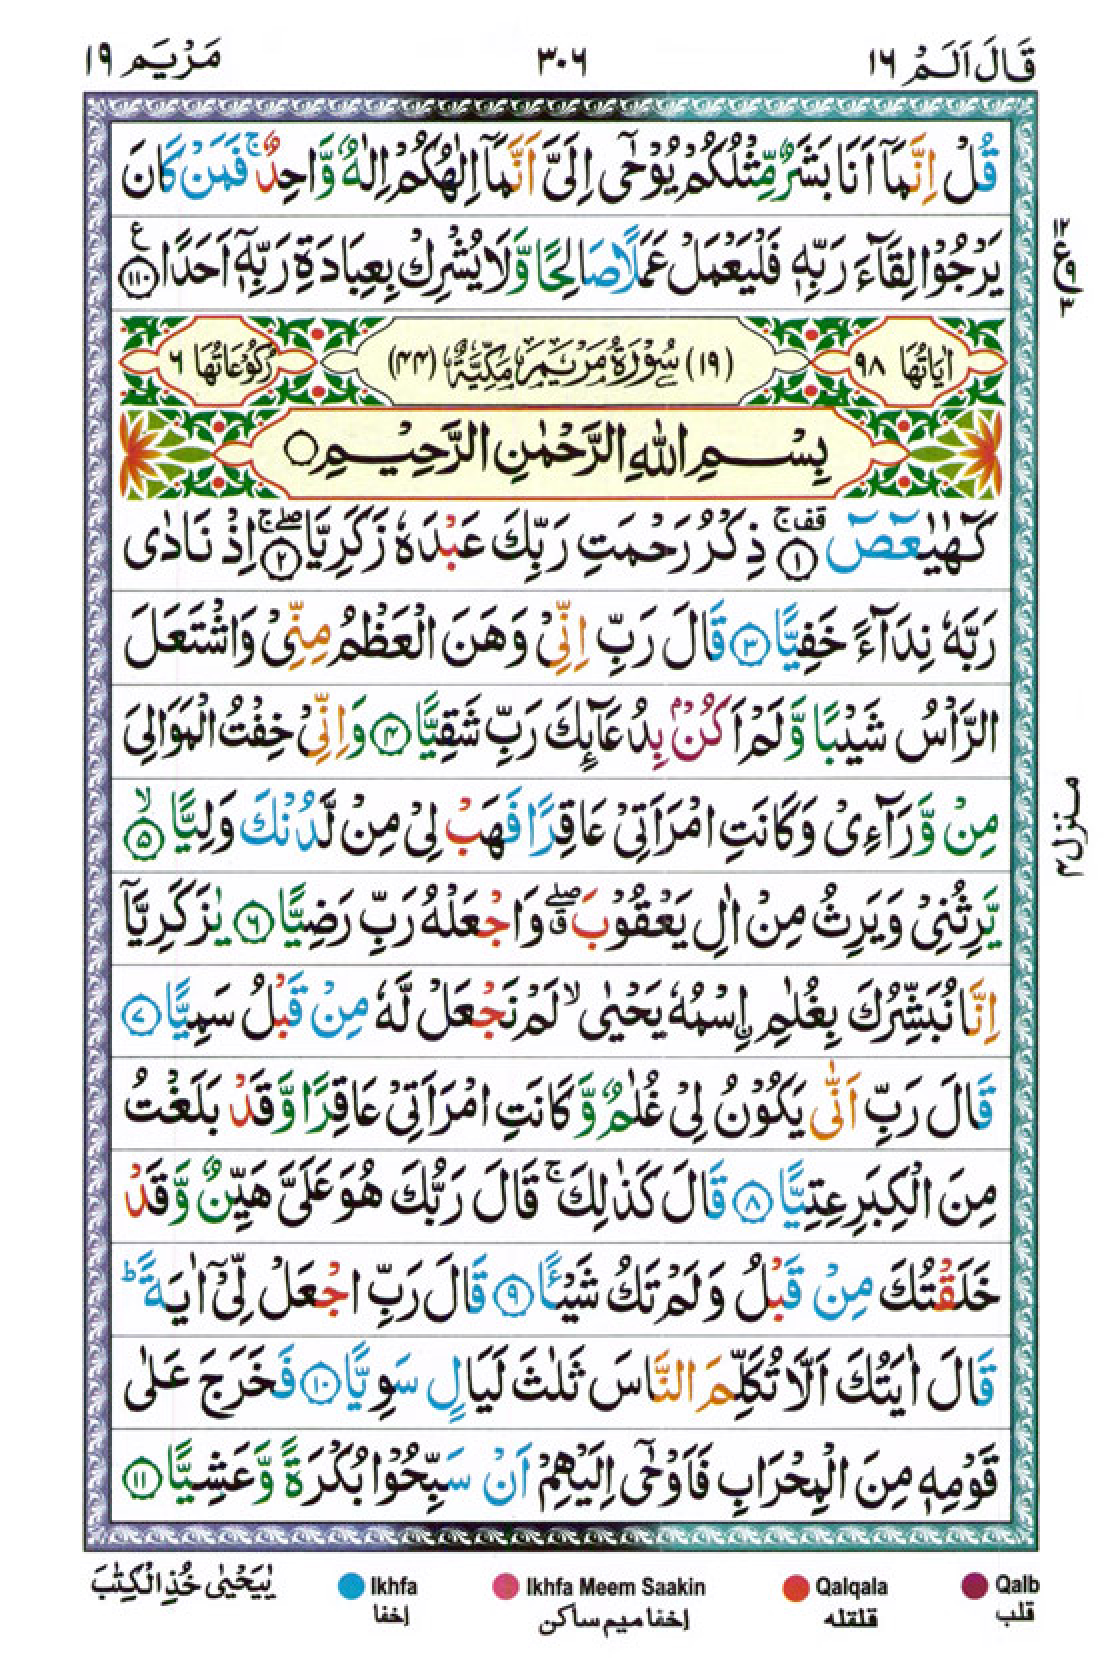 قَالَ اَلَمْ ١٦ ٣٠٦ مَرْيَم ١٩
قُلْ اِنَّمَاۤ اَنَا بَشَرٌ مِّثْلُكُمْ يُوْحٰۤى اِلَيَّ اَنَّمَاۤ اِلٰهُكُمْ اِلٰهٌ وَّاحِدٌ ۚ فَمَنْ كَانَ
يَرْجُوْا لِقَآءَ رَبِّهٖ فَلْيَعْمَلْ عَمَلًا صَالِحًا وَّلَا يُشْرِكْ بِعِبَادَةِ رَبِّهٖۤ اَحَدًا ﴿١١٠﴾ ع
١٢
ع ٩
٣
اٰيَاتُهَا ٩٨ (١٩) سُوْرَةُ مَرْيَمَ مَكِّيَّةٌ (٤٤) رُكُوْعَاتُهَا ٦
بِسْمِ اللّٰهِ الرَّحْمٰنِ الرَّحِيْمِ
كٓهٰيٰعٓصٓ ﴿١﴾ قف ج ذِكْرُ رَحْمَتِ رَبِّكَ عَبْدَهٗ زَكَرِيَّا ﴿٢﴾ صلے ج اِذْ نَادٰى
رَبَّهٗ نِدَآءً خَفِيًّا ﴿٣﴾ قَالَ رَبِّ اِنِّيْ وَهَنَ الْعَظْمُ مِنِّيْ وَاشْتَعَلَ
الرَّاْسُ شَيْبًا وَّلَمْ اَكُنْۢ بِدُعَآئِكَ رَبِّ شَقِيًّا ﴿٤﴾ وَاِنِّيْ خِفْتُ الْمَوَالِيَ
مِنْ وَّرَآءِيْ وَكَانَتِ امْرَاَتِيْ عَاقِرًا فَهَبْ لِيْ مِنْ لَّدُنْكَ وَلِيًّا ﴿٥﴾ ۙ
يَّرِثُنِيْ وَيَرِثُ مِنْ اٰلِ يَعْقُوْبَ صلے ق وَاجْعَلْهُ رَبِّ رَضِيًّا ﴿٦﴾ يٰزَكَرِيَّاۤ
اِنَّا نُبَشِّرُكَ بِغُلٰمِ ۨاسْمُهٗ يَحْيٰى ۙ لَمْ نَجْعَلْ لَّهٗ مِنْ قَبْلُ سَمِيًّا ﴿٧﴾
قَالَ رَبِّ اَنّٰى يَكُوْنُ لِيْ غُلٰمٌ وَّكَانَتِ امْرَاَتِيْ عَاقِرًا وَّقَدْ بَلَغْتُ
مِنَ الْكِبَرِ عِتِيًّا ﴿٨﴾ قَالَ كَذٰلِكَ ۚ قَالَ رَبُّكَ هُوَ عَلَيَّ هَيِّنٌ وَّقَدْ
خَلَقْتُكَ مِنْ قَبْلُ وَلَمْ تَكُ شَيْئًا ﴿٩﴾ قَالَ رَبِّ اجْعَلْ لِّيْۤ اٰيَةً ؕ
قَالَ اٰيَتُكَ اَلَّا تُكَلِّمَ النَّاسَ ثَلٰثَ لَيَالٍ سَوِيًّا ﴿١٠﴾ فَخَرَجَ عَلٰى
قَوْمِهٖ مِنَ الْمِحْرَابِ فَاَوْحٰۤى اِلَيْهِمْ اَنْ سَبِّحُوْا بُكْرَةً وَّعَشِيًّا ﴿١١﴾
منزل ٤
يٰيَحْيٰى خُذِ الْكِتٰبَ
Ikhfa Ikhfa Meem Saakin Qalqala Qalb
إخفا إخفا ميم ساكن قلقله قلب